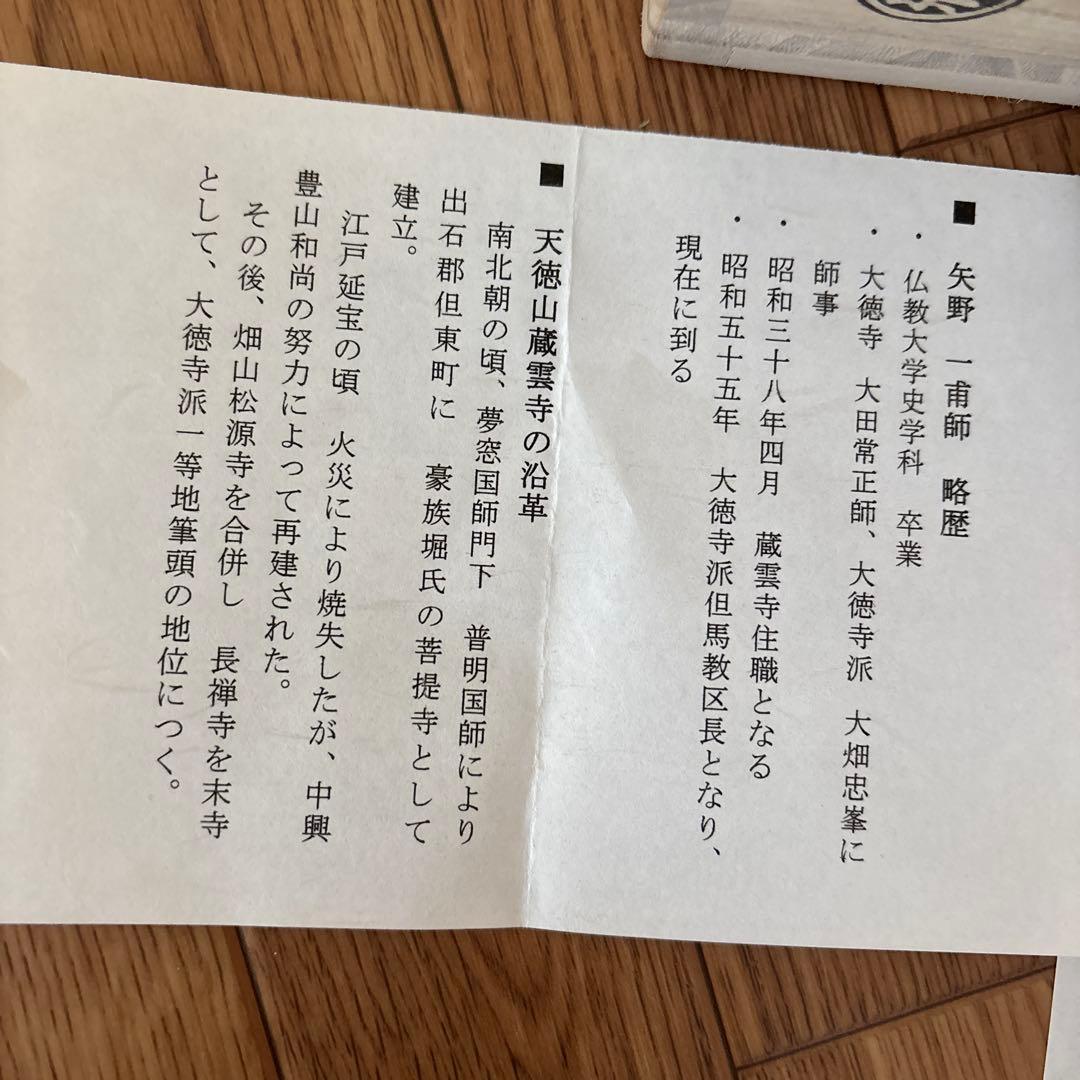 ■ 矢野 一甫師 略歴
・仏教大学史学科 卒業
・大徳寺 大田常正師、大徳寺派 大畑忠峯に
師事
・昭和三十八年四月 蔵雲寺住職となる
・昭和五十五年 大徳寺派但馬教区長となり、
現在に到る
■ 天徳山蔵雲寺の沿革
南北朝の頃、夢窓国師門下 普明国師により
出石郡但東町に 豪族堀氏の菩提寺として
建立。
江戸延宝の頃 火災により焼失したが、中興
豊山和尚の努力によって再建された。
その後、畑山松源寺を合併し 長禅寺を末寺
として、大徳寺派一等地筆頭の地位につく。